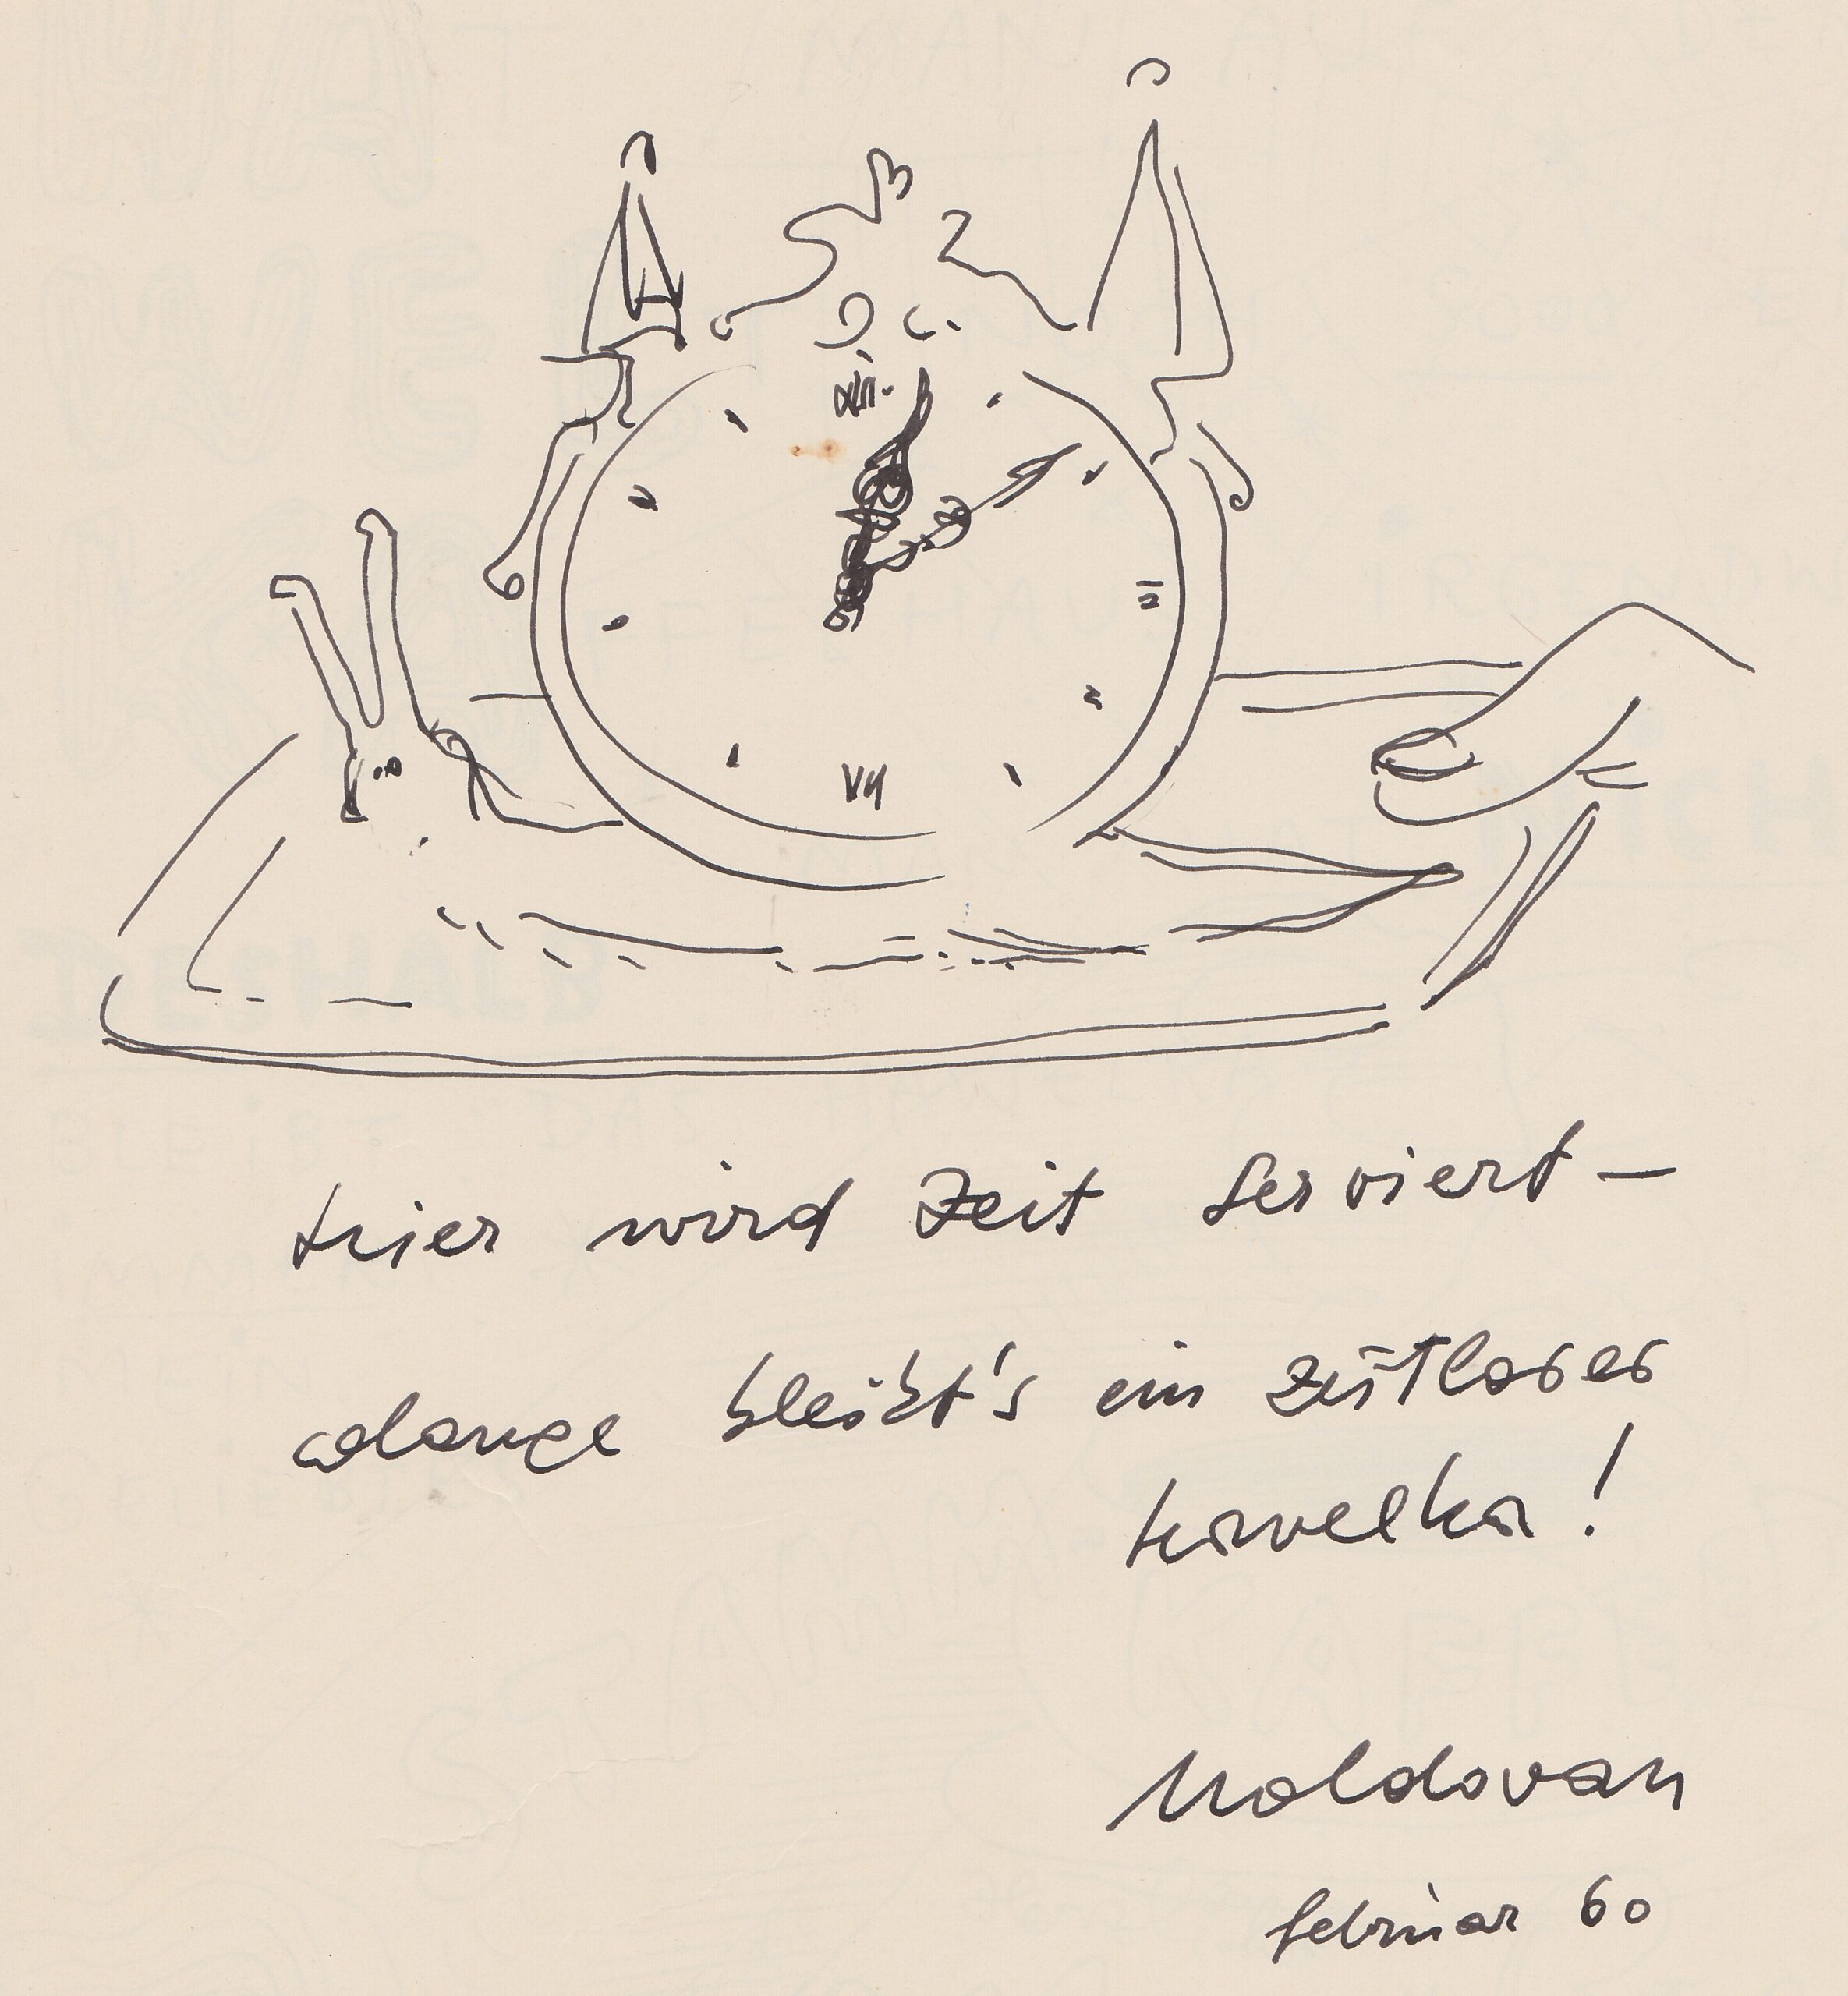 XII
III
VI
hier wird Zeit serviert –
solange bleibt's ein zeitloses
hawelka!
Moldovan
februar 60